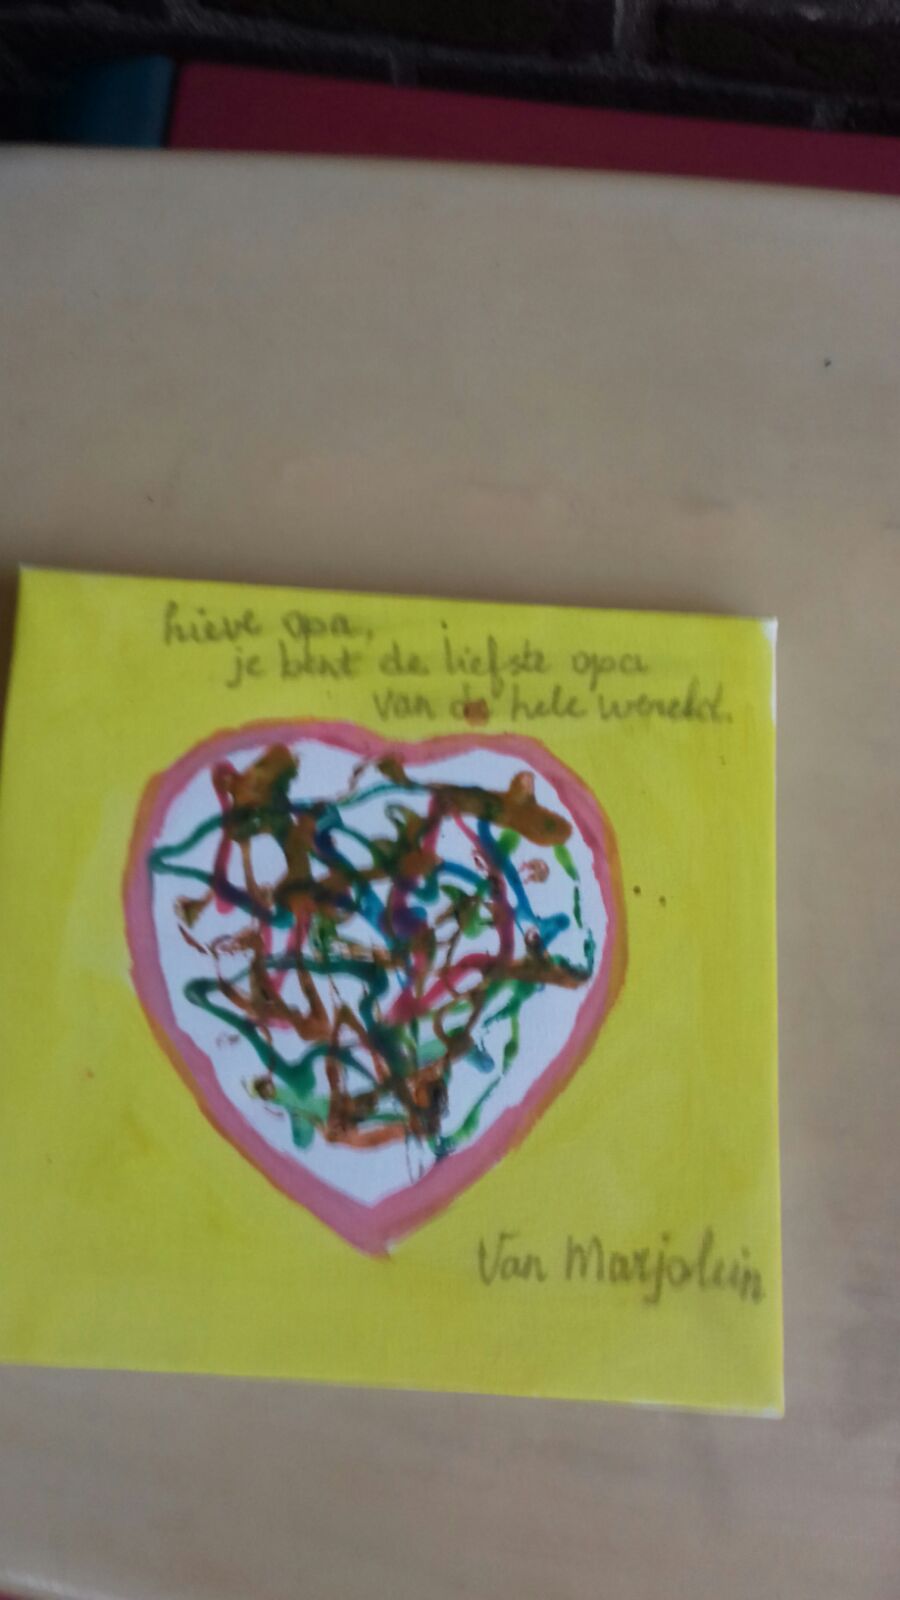 lieve opa,
je bent de liefste opa
van de hele wereld.
Van Marjolein